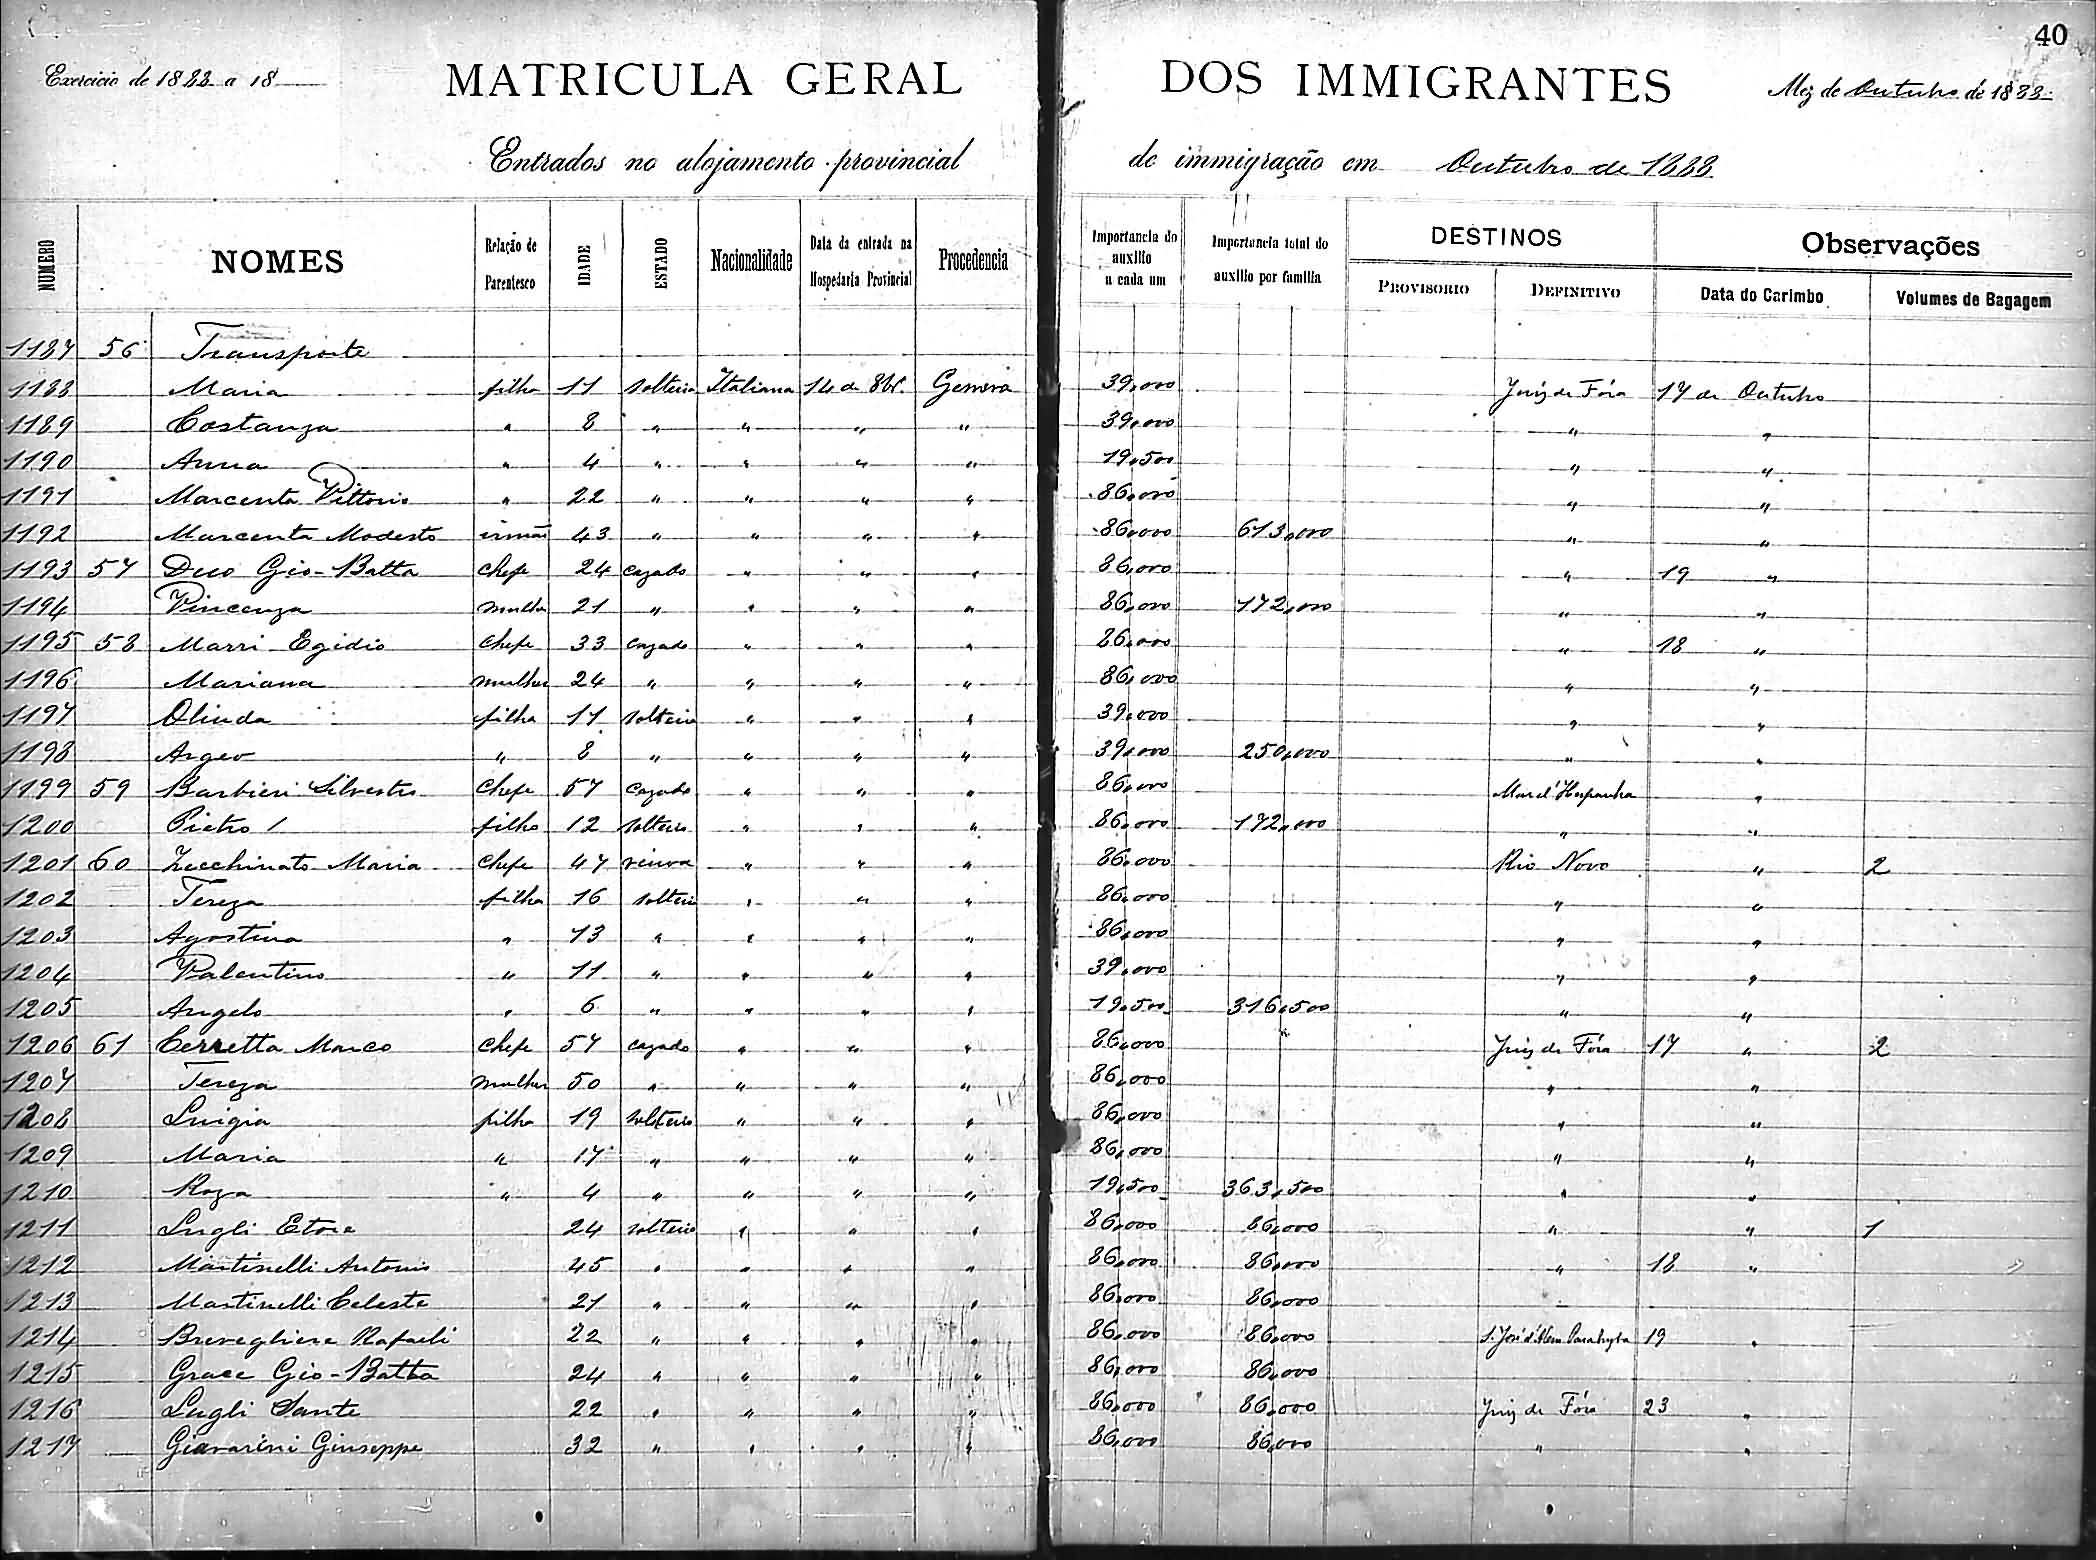 40
Exercicio de 1888 a 18
MATRICULA GERAL DOS IMMIGRANTES
Mez de Outubro de 1888
Entrados no alojamento provincial de immigração em Outubro de 1888
NUMERO NOMES Relação de Parentesco IDADE ESTADO Nacionalidade Data da entrada na Hospedaria Provincial Procedencia Importancia do auxilio a cada um Importancia total do auxilio por familia DESTINOS PROVISORIO DEFINITIVO Observações Data do Carimbo Volumes de Bagagem
1187 56 Transporte
1188 Maria filha 11 solteira Italiana 14 de 8br. Genova 39,000 Juiz de Fóra 17 de Outubro
1189 Costanza " 8 " " " " 39,000 " "
1190 Anna " 4 " " " " 19,500 " "
1191 Marcenta Vittorio " 22 " " " " 86,000 " "
1192 Marcenta Modesto irmão 43 " " " " 86,000 613,000 " "
1193 57 Duo Gio-Batta Chefe 24 cazado " " " 86,000 " 19 "
1194 Vincenza mulher 21 " " " " 86,000 172,000 " "
1195 58 Marri Egidio Chefe 33 cazado " " " 86,000 " 18 "
1196 Mariana mulher 24 " " " " 86,000 " "
1197 Olinda filha 11 solteira " " " 39,000 " "
1198 Argeo " 8 " " " " 39,000 250,000 " "
1199 59 Barbieri Silvestro Chefe 57 cazado " " " 86,000 Mar d'Hespanha "
1200 Pietro / filho 12 solteiro " " " 86,000 172,000 " "
1201 60 Zecchinato Maria Chefe 47 viuva " " " 86,000 Rio Novo " 2
1202 Tereza filha 16 solteira " " " 86,000 " "
1203 Agostina " 13 " " " " 86,000 " "
1204 Valentino " 11 " " " " 39,000 " "
1205 Angelo " 6 " " " " 19,500 316,500 " "
1206 61 Cerretta Marco Chefe 57 cazado " " " 86,000 Juiz de Fóra 17 " 2
1207 Tereza mulher 50 " " " " 86,000 " "
1208 Luigia filha 19 solteiro " " " 86,000 " "
1209 Maria " 17 " " " " 86,000 " "
1210 Roza " 4 " " " " 19,500 363,500 " "
1211 Lugli Etore 24 solteiro " " " 86,000 86,000 " " 1
1212 Martinelli Antonio 45 " " " " 86,000 86,000 " 18 "
1213 Martinelli Celeste 21 " " " " 86,000 86,000
1214 Brevegliere Rafaeli 22 " " " " 86,000 86,000 S. José d'Alem Parahyba 19 "
1215 Grace Gio-Batta 24 " " " " 86,000 86,000
1216 Lugli Sante 22 " " " " 86,000 86,000 Juiz de Fóra 23 "
1217 Giavarini Giuseppe 32 " " " " 86,000 86,000 " "